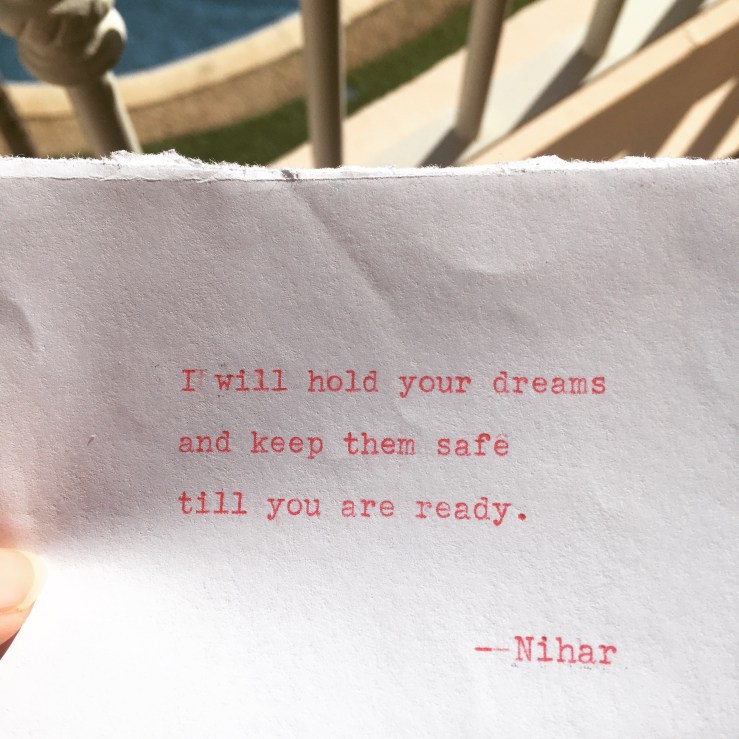 I will hold your dreams
and keep them safe
till you are ready.
--Nihar